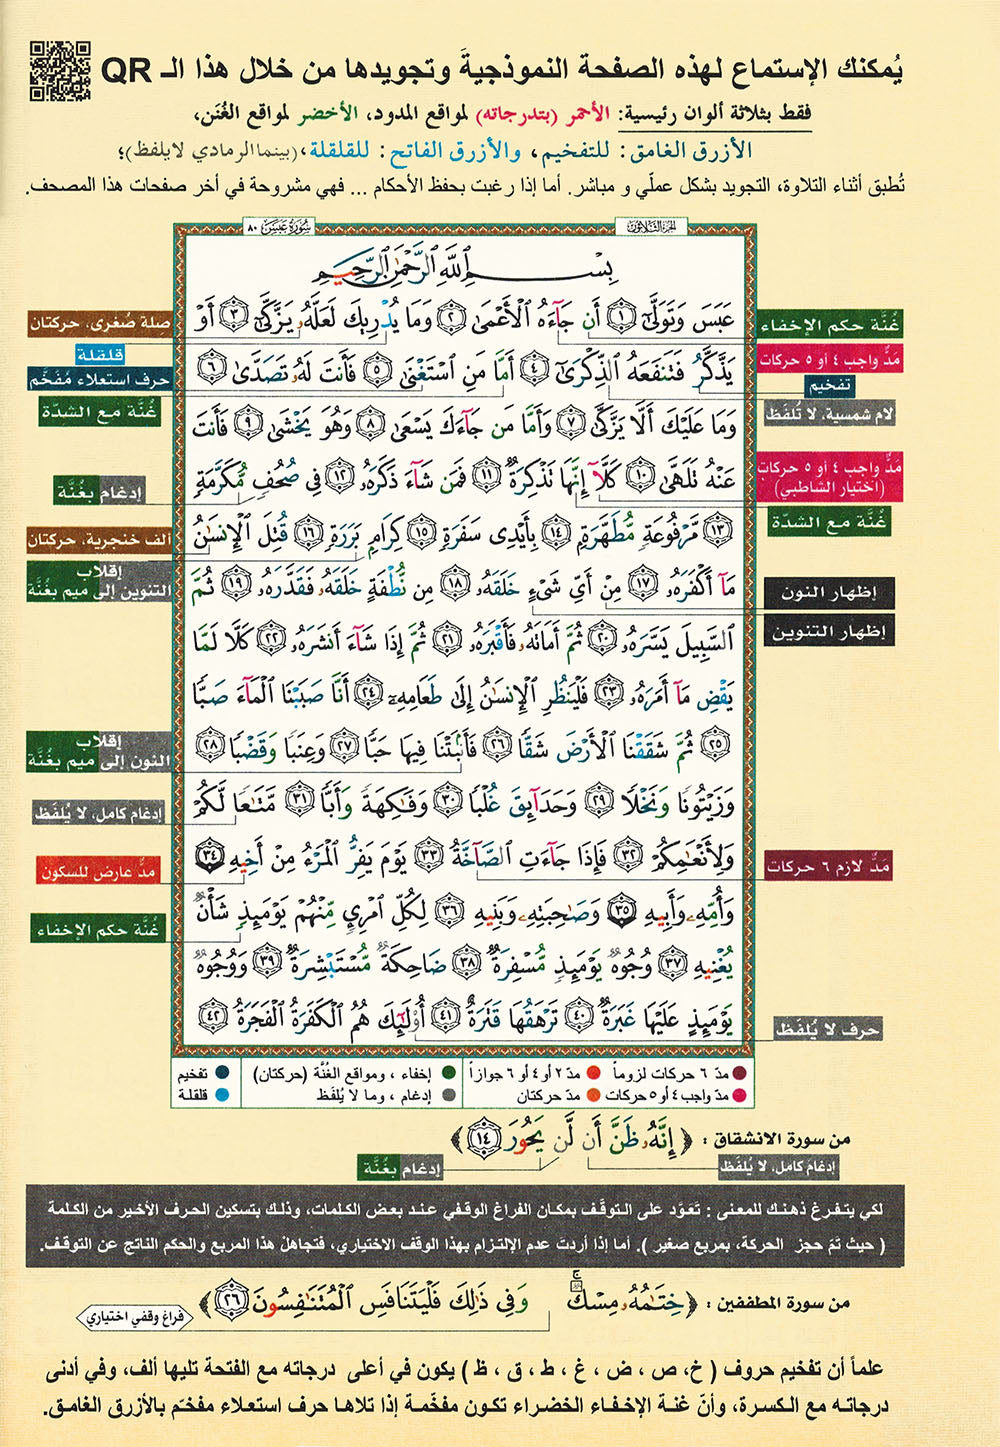 يُمكنك الإستماع لهذه الصفحة النموذجيةَ وتجويدها من خلال هذا الـ QR
فقط بثلاثة ألوان رئيسية: الأحمر (بتدرجاته) لمواقع المدود، الأخضر لمواقع الغُنَن،
الأزرق الغامق: للتفخيم، والأزرق الفاتح: للقلقلة، (بينما الرمادي لا يلفظ)؛
تُطبق أثناء التلاوة، التجويد بشكل عملّي و مباشر. أما إذا رغبت بحفظ الأحكام ... فهي مشروحة في أخر صفحات هذا المصحف.
الجزء الثلاثون
سورة عبس ٨٠
بِسْمِ ٱللَّهِ ٱلرَّحْمَٰنِ ٱلرَّحِيمِ
عَبَسَ وَتَوَلَّىٰٓ ١ أَن جَآءَهُ ٱلْأَعْمَىٰ ٢ وَمَا يُدْرِيكَ لَعَلَّهُۥ يَزَّكَّىٰٓ ٣ أَوْ
يَذَّكَّرُ فَتَنفَعَهُ ٱلذِّكْرَىٰٓ ٤ أَمَّا مَنِ ٱسْتَغْنَىٰ ٥ فَأَنتَ لَهُۥ تَصَدَّىٰ ٦
وَمَا عَلَيْكَ أَلَّا يَزَّكَّىٰ ٧ وَأَمَّا مَن جَآءَكَ يَسْعَىٰ ٨ وَهُوَ يَخْشَىٰ ٩ فَأَنتَ
عَنْهُ تَلَهَّىٰ ١٠ كَلَّآ إِنَّهَا تَذْكِرَةٌ ١١ فَمَن شَآءَ ذَكَرَهُۥ ١٢ فِى صُحُفٍ مُّكَرَّمَةٍ
١٣ مَّرْفُوعَةٍ مُّطَهَّرَةٍۭ ١٤ بِأَيْدِى سَفَرَةٍ ١٥ كِرَامٍۭ بَرَرَةٍ ١٦ قُتِلَ ٱلْإِنسَٰنُ
مَآ أَكْفَرَهُۥ ١٧ مِنْ أَىِّ شَىْءٍ خَلَقَهُۥ ١٨ مِن نُّطْفَةٍ خَلَقَهُۥ فَقَدَّرَهُۥ ١٩ ثُمَّ
ٱلسَّبِيلَ يَسَّرَهُۥ ٢٠ ثُمَّ أَمَاتَهُۥ فَأَقْبَرَهُۥ ٢١ ثُمَّ إِذَا شَآءَ أَنشَرَهُۥ ٢٢ كَلَّا لَمَّا
يَقْضِ مَآ أَمَرَهُۥ ٢٣ فَلْيَنظُرِ ٱلْإِنسَٰنُ إِلَىٰ طَعَامِهِۦٓ ٢٤ أَنَّا صَبَبْنَا ٱلْمَآءَ صَبًّا
٢٥ ثُمَّ شَقَقْنَا ٱلْأَرْضَ شَقًّا ٢٦ فَأَنۢبَتْنَا فِيهَا حَبًّا ٢٧ وَعِنَبًا وَقَضْبًا ٢٨
وَزَيْتُونًا وَنَخْلًا ٢٩ وَحَدَآئِقَ غُلْبًا ٣٠ وَفَٰكِهَةً وَأَبًّا ٣١ مَّتَٰعًا لَّكُمْ
وَلِأَنْعَٰمِكُمْ ٣٢ فَإِذَا جَآءَتِ ٱلصَّآخَّةُ ٣٣ يَوْمَ يَفِرُّ ٱلْمَرْءُ مِنْ أَخِيهِ ٣٤
وَأُمِّهِۦ وَأَبِيهِ ٣٥ وَصَٰحِبَتِهِۦ وَبَنِيهِ ٣٦ لِكُلِّ ٱمْرِئٍ مِّنْهُمْ يَوْمَئِذٍ شَأْنٌ
يُغْنِيهِ ٣٧ وُجُوهٌ يَوْمَئِذٍ مُّسْفِرَةٌ ٣٨ ضَاحِكَةٌ مُّسْتَبْشِرَةٌ ٣٩ وَوُجُوهٌ
يَوْمَئِذٍ عَلَيْهَا غَبَرَةٌ ٤٠ تَرْهَقُهَا قَتَرَةٌ ٤١ أُو۟لَٰٓئِكَ هُمُ ٱلْكَفَرَةُ ٱلْفَجَرَةُ ٤٢
غُنَّة حكم الإخفاء
مَدّ واجب ٤ أو ٥ حركات
تفخيم
لام شمسية، لا تُلفَظ
مَدّ واجب ٤ أو ٥ حركات
(اختيار الشاطبي)
غُنَّة مع الشدّة
إظهار النون
إظهار التنوين
مَدّ لازم ٦ حركات
حرف لا يُلفَظ
صلة صُغرى، حركتان
قلقلة
حرف استعلاء مُفَخَّم
غُنَّة مع الشدّة
إدغام بغُنَّة
ألف خنجرية، حركتان
إقلاب
التنوين إلى ميم بغُنَّة
إقلاب
النون إلى ميم بغُنَّة
إدغام كامل، لا يُلفَظ
مدّ عارض للسكون
غُنَّة حكم الإخفاء
مدّ ٦ حركات لزوماً
مدّ ٢ أو ٤ أو ٦ جوازاً
إخفاء ، ومواقع الغُنَّة (حركتان)
تفخيم
مدّ واجب ٤ أو ٥ حركات
مدّ حركتان
إدغام ، وما لا يُلفَظ
قلقلة
من سورة الانشقاق : ﴿ إِنَّهُۥ ظَنَّ أَن لَّن يَحُورَ ١٤ ﴾
إدغام كامل، لا يُلفَظ
إدغام بغُنَّة
لكي يتفرغ ذهنك للمعنى : تَعَوَّد على التوقَّف بمكان الفراغ الوقفي عند بعض الكلمات، وذلك بتسكين الحرف الأخير من الكلمة
( حيث تمّ حجز الحركة، بمربع صغير ). أما إذا أردتَ عدم الإلتزام بهذا الوقف الاختياري، فتجاهلْ هذا المربع والحكم الناتج عن التوقف.
من سورة المطففين : ﴿ خِتَٰمُهُۥ مِسْكٌ ۚ وَفِى ذَٰلِكَ فَلْيَتَنَافَسِ ٱلْمُتَنَٰفِسُونَ ٢٦ ﴾
فراغ وقفي اختياري
علماً أن تفخيم حروف ( خ، ص ، ض ، غ ، ط ، ق ، ظ ) يكون في أعلى درجاته مع الفتحة تليها ألف، وفي أدنى
درجاته مع الكسرة، وأنّ غنة الإخفاء الخضراء تكون مفخّمة إذا تلاها حرف استعلاء مفخّم بالأزرق الغامق.